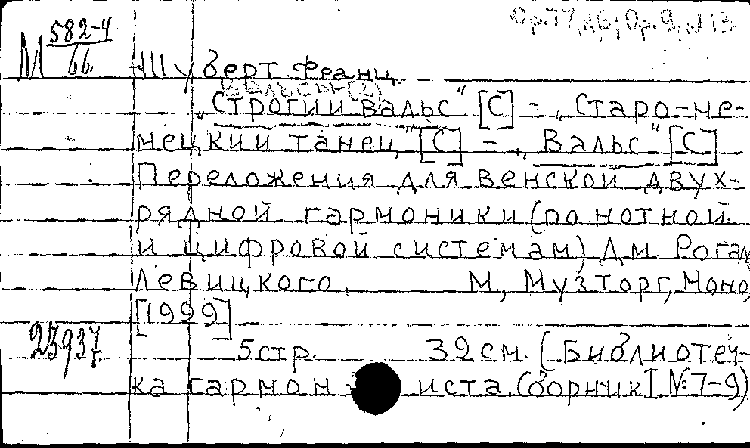 Ор. 77, №6; Ор. 9, №13
М 582-4/66
Шуберт Франц.
[Вальсы(2)]
„Строгий вальс" [С] – „Старо-не-
мецкий танец" [С] – „Вальс" [С]
Переложения для венской двух-
рядной гармоники (по нотной
и цифровой системам) Дм. Рогаль
Левицкого. М, Музторг, Моно,
[1929]
23937.
5 стр. 32 см. (Библиотеч-
ка гармониста. Сборник I №7-9)